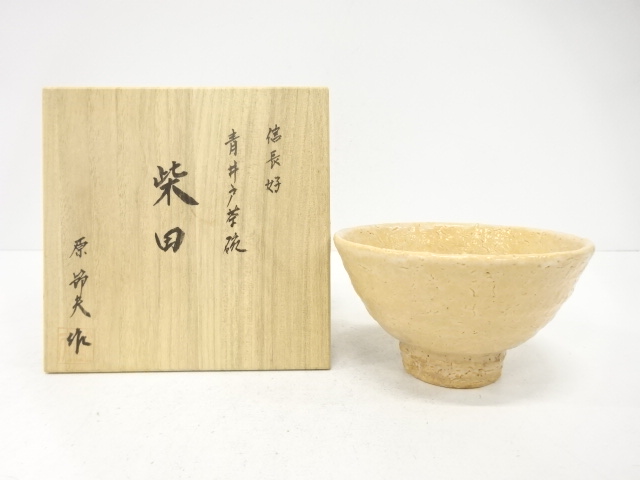 信長好
青井戸茶碗
柴田
原節夫作